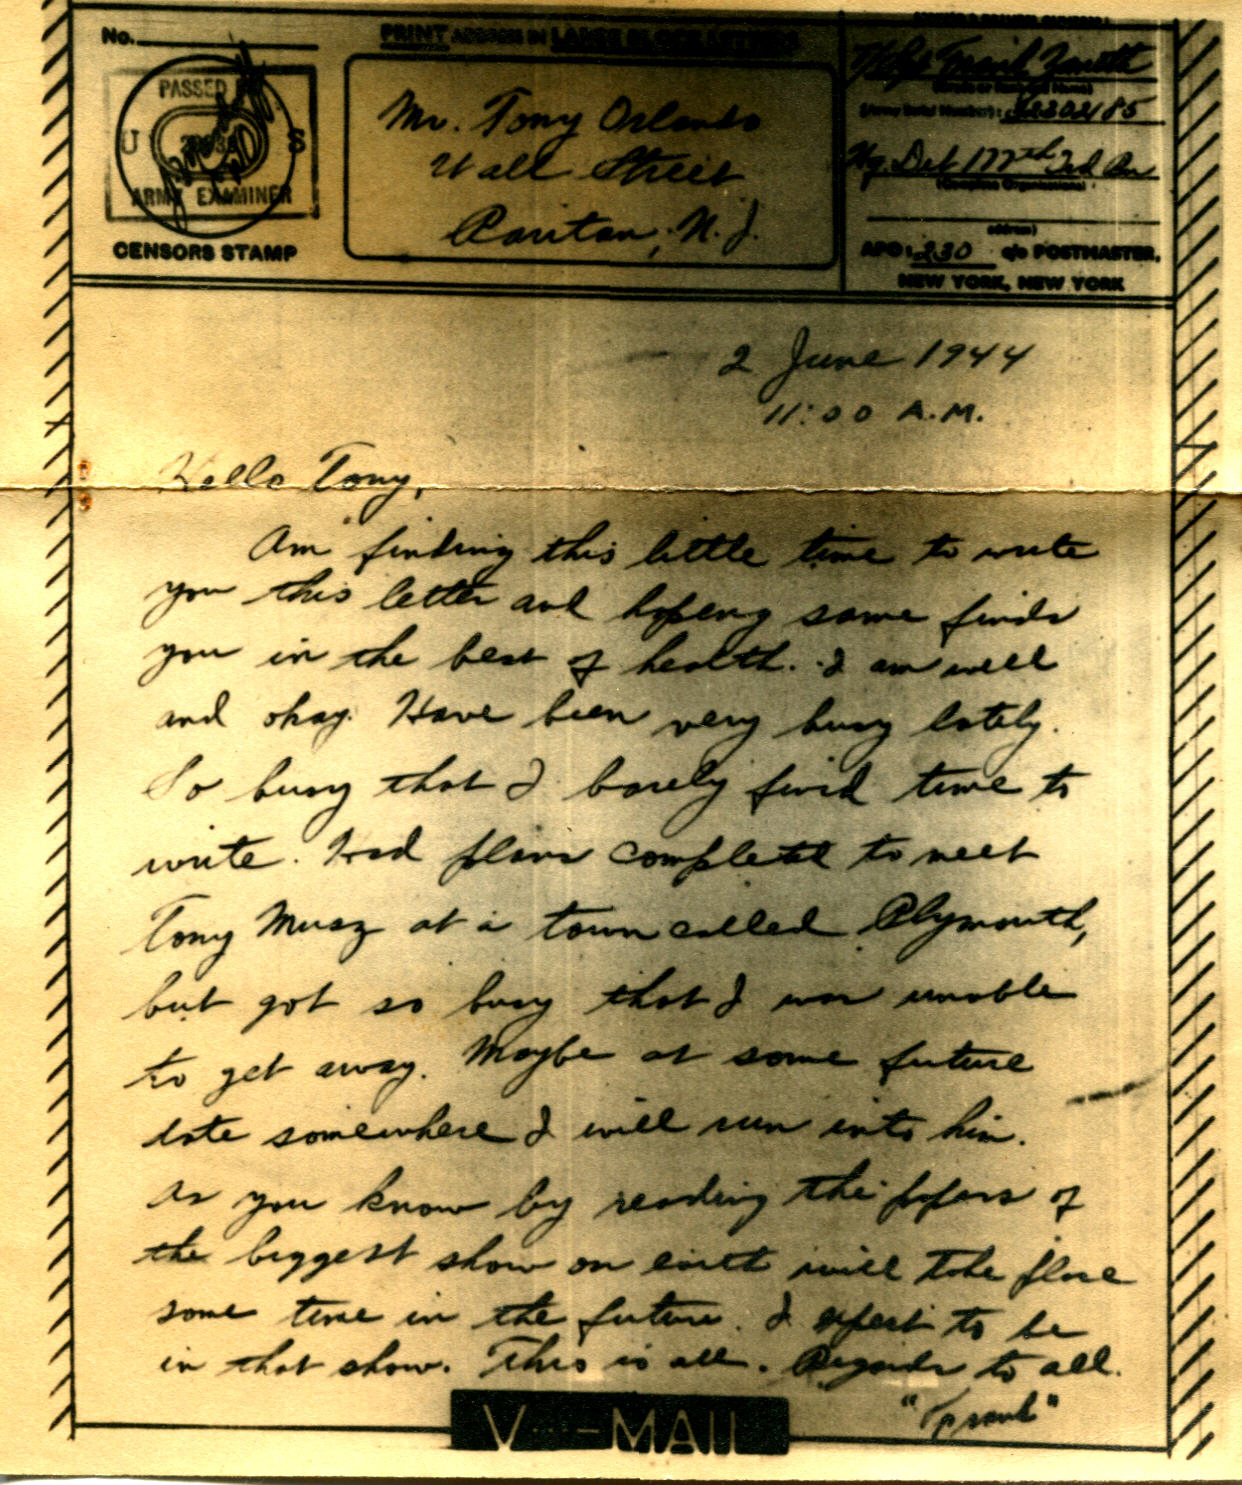 No.
PRINT ADDRESS IN LARGE BLOCK LETTERS
PASSED BY
U S
ARMY EXAMINER
CENSORS STAMP
Mr. Tony Orlando
Wall Street
Raritan, N. J.
(Army Serial Number): 32302485
Hq. Det
(Complete Organization)
address)
APO: 230 c/o POSTMASTER,
NEW YORK, NEW YORK
2 June 1944
11:00 A.M.
Hello Tony,
Am finding this little time to write
you this letter and hopeng same finds
you in the best of health. I am well
and okay. Have been very busy lately.
So busy that I barely find time to
write. Had plans completed to meet
Tony Musz at a town called Plymouth,
but got so busy that I was unable
to get away. Maybe at some future
date somewhere I will run into him.
As you know by reading the papers of
the biggest show on earth will take place
some time in the future. I expect to be
in that show. This is all. Regards to all.
V···–MAIL